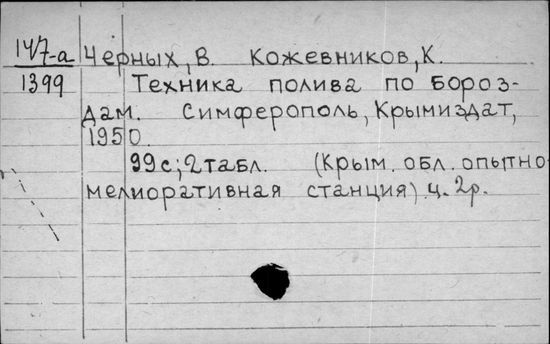 147-а Черных, В. Кожевников, К.
1399 Техника полива по бороз-
дам. Симферополь, Крымиздат,
1950.
99с; 2 табл. (Крым. обл. опытно
мелиоративная станция) ц. 2р.